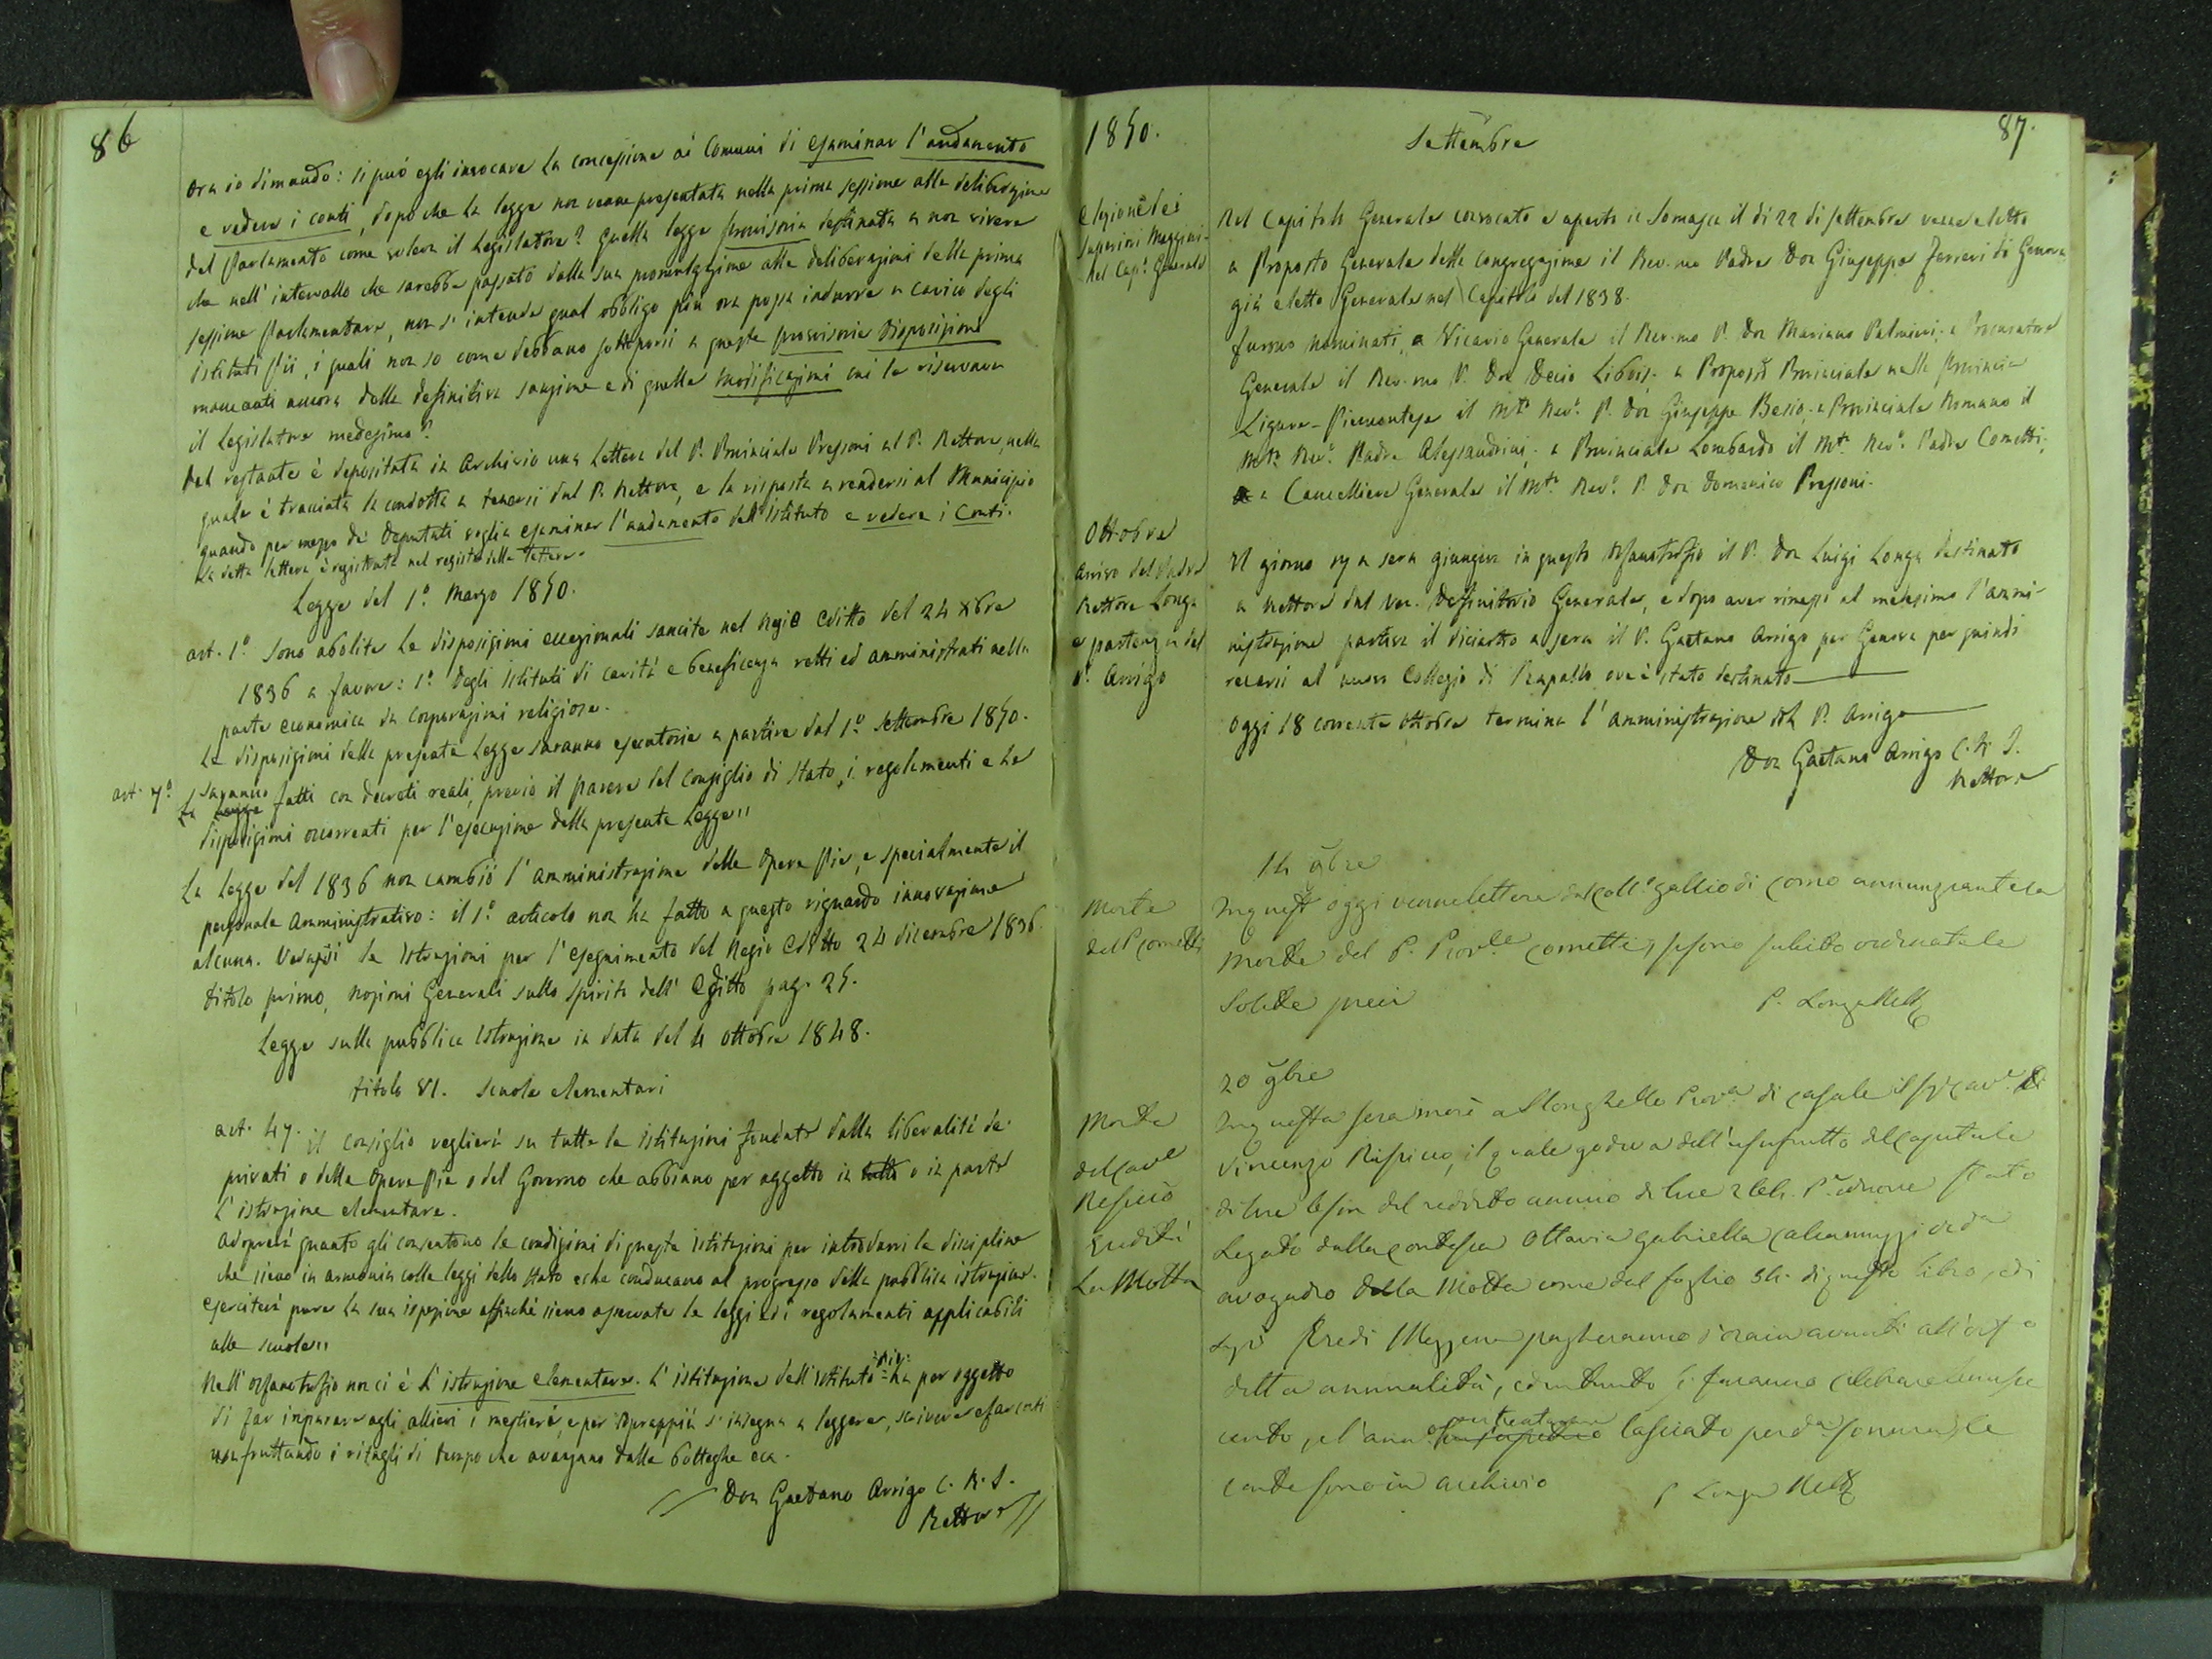 86
Ora io dimando: si può egli invocare la concessione ai Comuni di esaminar l'andamento
e vedere i conti, dopo che la legge non venne presentata nella prima sessione alla deliberazione
del Parlamento come voleva il Legislatore? Quella legge provvisoria destinata a non vivere
che nell'intervallo che sarebbe passato dalla sua promulgazione alle deliberazioni della prima
sessione Parlamentare, non s'intende qual obbligo più ora possa indurre a carico degli
istituti Pii, i quali non so come debbano sottoporsi a queste provvisorie disposizioni
mancanti ancora della definitiva sanzione e di quelle modificazioni cui le riservava
il Legislatore medesimo?
Del restante è depositata in Archivio una Lettera del P. Provinciale Pressoni al P. Rettore, nella
quale è tracciata la condotta a tenersi dal P. Rettore, e la risposta a rendersi al Municipio
quando per mezzo de' Deputati voglia esaminar l'andamento dell'Istituto e vedere i Conti.
La detta lettera è registrata nel registro delle lettere.
Legge del 1.º Marzo 1850.
art. 1.º Sono abolite le disposizioni eccezionali sancite nel Regio Editto del 24 Xbre
1836 a favore: 1.º degli Istituti di carità e beneficenza retti ed amministrati nella
parte economica da corporazioni religiose.
Le disposizioni della presente Legge saranno esecutorie a partire dal 1.º Settembre 1850.
art. 7.º Saranno fatti con decreti reali, previo il parere del Consiglio di Stato, i regolamenti e le
disposizioni occorrenti per l'esecuzione della presente Legge"
La Legge del 1836 non cambiò l'amministrazione delle Opere Pie, e specialmente il
personale amministrativo: il 1.º articolo non ha fatto a questo riguardo innovazione
alcuna. Vedansi le Istruzioni per l'eseguimento del Regio Editto 24 dicembre 1836.
titolo primo, nozioni Generali sullo spirito dell'Editto pag. 25.
Legge sulla pubblica Istruzione in data del 4 Ottobre 1848.
titolo VI. Scuole elementari
art. 47. il Consiglio veglierà su tutte le istituzioni fondate dalla liberalità de'
privati o delle Opere Pie o del Governo che abbiano per oggetto in tutto o in parte
l'istruzione elementare.
Adoprerà quanto gli consentono le condizioni di queste istituzioni per introdurvi le discipline
che sieno in armonia colle leggi dello Stato e che conducano al progresso della pubblica istruzione.
eserciterà pure la sua ispezione affinché sieno osservate le leggi ed i regolamenti applicabili
alle scuole"
Nell'Orfanotrofio non ci è l'istruzione elementare. L'istituzione dell'Istituto Pio ha per oggetto
di far imparare agli allievi i mestieri, e per soprappiù s'insegna a leggere, scrivere e far conti
usufruttando i ritagli di tempo che avanzano dalle botteghe ecc.
Don Gaetano Arrigo C. R. S.
Rettore
1850.
Settembre
87.
Elezione dei
Superiori Maggiori
nel Cap.º Generale
Nel Capitolo Generale convocato e aperto in Somasca il dì 22 di settembre venne eletto
a Proposto Generale della Congregazione il Rev.mo Padre Don Giuseppe Ferreri di Genova
già eletto Generale nel Capitolo del 1838.
furono nominati, a Vicario Generale il Rev.mo P. Don Mariano Palmieri; a Procuratore
Generale il Rev.mo P. Don Decio Libois; a Proposto Provinciale nella Provincia
Ligure-Piemontese il M.to Rev.º P. Don Giuseppe Besio; a Provinciale Romano il
M.to Rev.º Padre Alessandrini; a Provinciale Lombardo il M.to Rev.º Padre Cometti;
a Cancelliere Generale il M.to Rev.º P. Don Domenico Pressoni.
Ottobre
Arrivo del Padre
Rettore Longa
e partenza del
P. Arrigo
Il giorno 17 a sera giungeva in questo Orfanotrofio il P. Don Luigi Longa destinato
a Rettore dal Ven. Definitorio Generale, e dopo aver rimessa al medesimo l'ammi-
nistrazione partiva il diciotto a sera il P. Gaetano Arrigo per Genova per quindi
recarsi al nuovo Collegio di Rapallo ove è stato destinato
Oggi 18 corrente Ottobre termina l'amministrazione del P. Arrigo
Don Gaetano Arrigo C. R. S.
Rettore
14 9bre
Morte
del P. Cometti
In quest'oggi venne lettera dal Coll.º Gallio di Como annunziante la
morte del P. Prov.le Cometti, si sono subito ordinate le
solite preci
P. Longa Rett
20 9bre
Morte
del Cav.e
Respicio
Eredità
La Motta
In questa sera morì a Stonghello Prov.a di Casale il Sig. Cav.e Di
Vincenzo Rispicio, il quale godeva dell'usufrutto del Capitale
di lire del reddito annuo di lire stato
Legato dalla Contessa Ottavia Gabriella
Avogadro della Motta come dal foglio 34. di questo libro, ed i
Eredi Mezzena pagheranno d'ora in avanti all'Orf.o
detta annualità, ed intanto si faranno celebrare le messe
cento, e l'ann.o lasciato per d.a somma, le
carte sono in archivio
P. Longa Rett